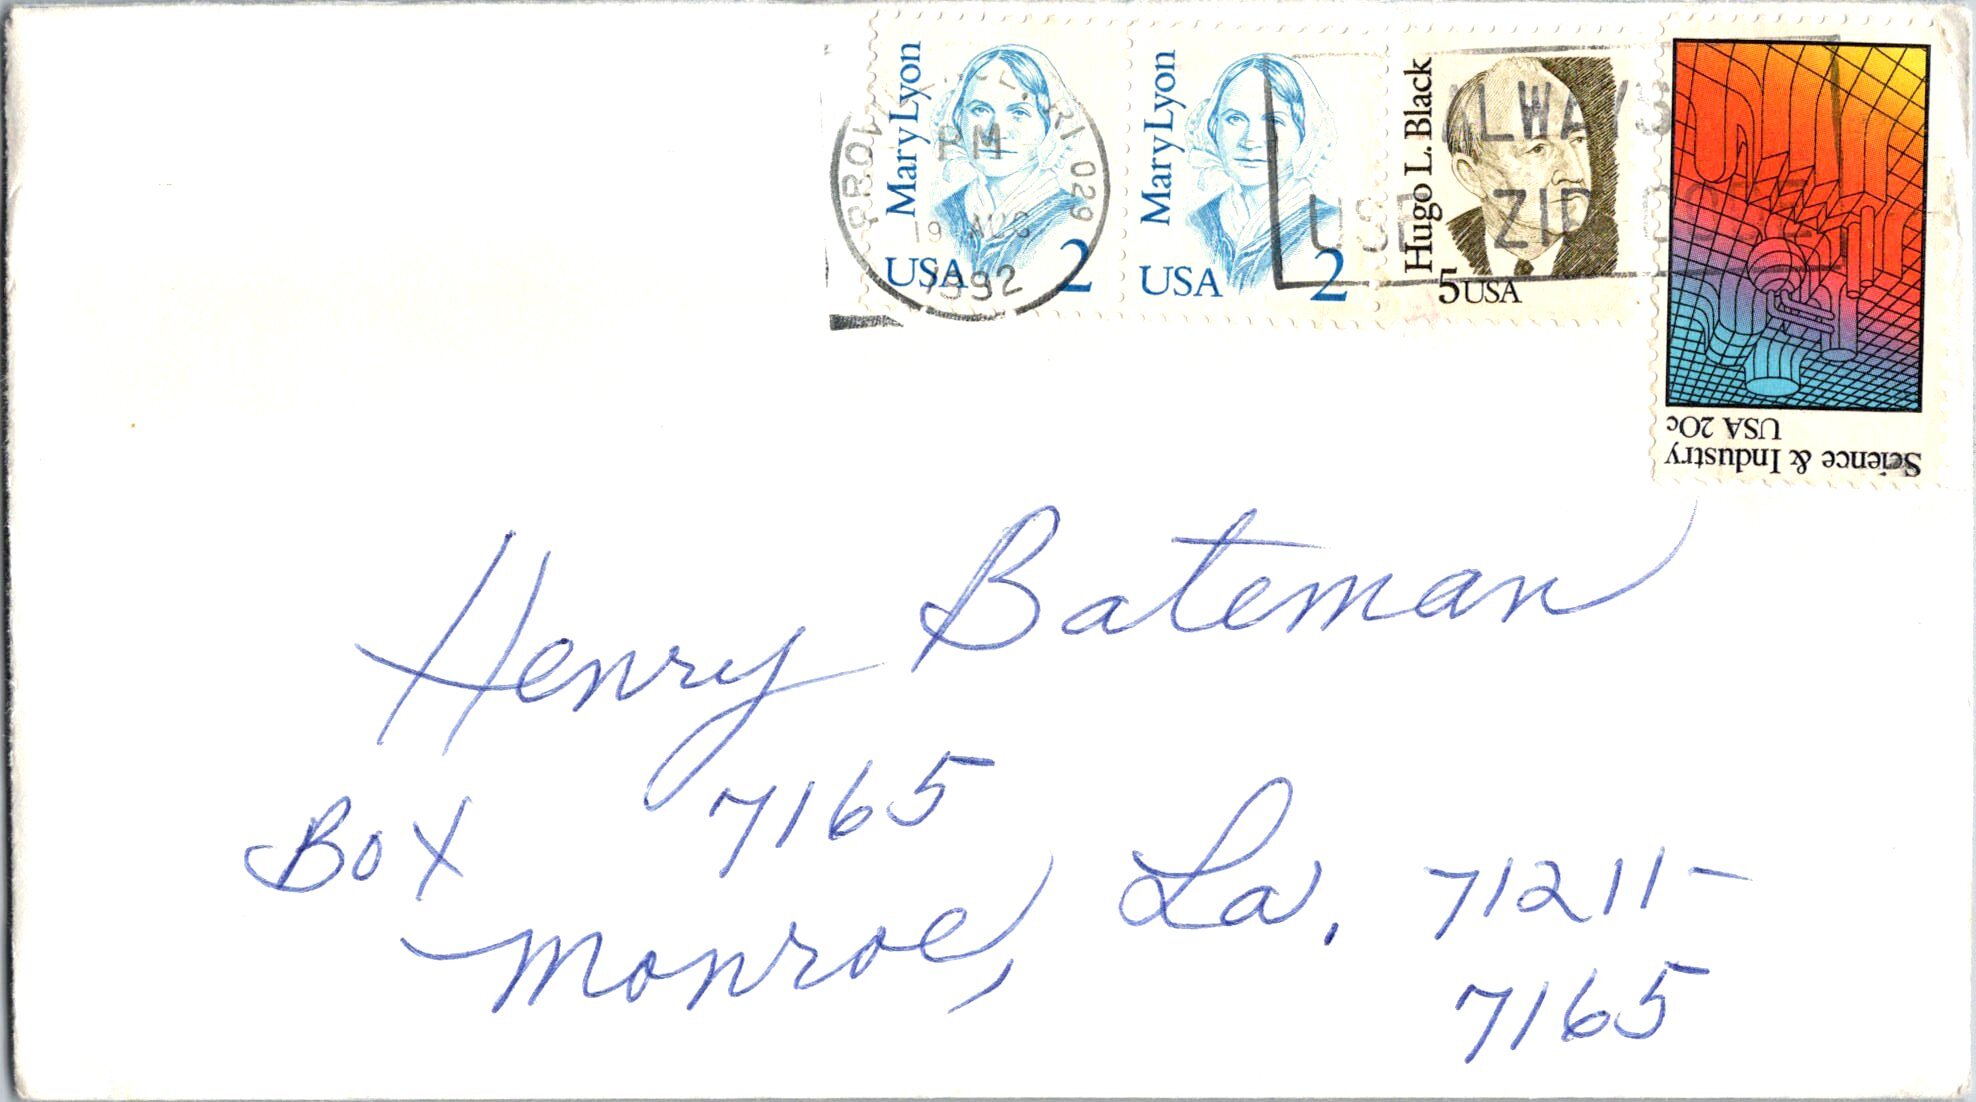 Mary Lyon
USA 2
Mary Lyon
USA 2
Hugo L. Black
5 USA
Science & Industry
USA 20c
PROVIDENCE, RI 029
PM
19 AUG
1992
ALWAYS
USE ZIP CODE
Henry Bateman
Box 7165
Monroe, La, 71211-
7165